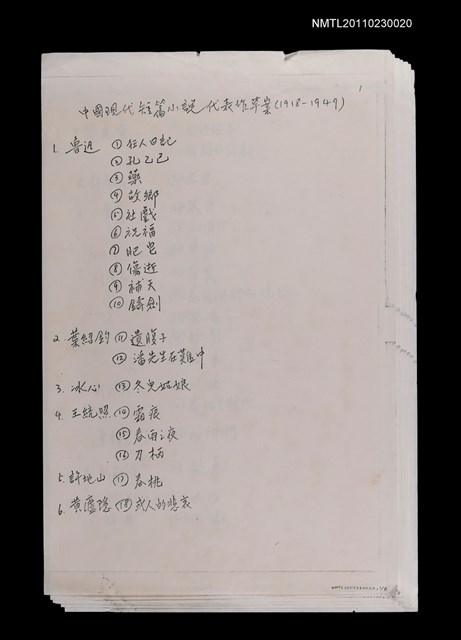 NMTL20110230020
1
中國現代短篇小說代表作草案(1918-1949)
1. 魯迅 ① 狂人日記
② 孔乙己
③ 藥
④ 故鄉
⑤ 社戲
⑥ 祝福
⑦ 肥皂
⑧ 傷逝
⑨ 補天
⑩ 鑄劍
2. 葉紹鈞 ⑪ 遺腹子
⑫ 潘先生在難中
3. 冰心 ⑬ 冬兒姑娘
4. 王統照 ⑭ 霜痕
⑮ 春雨之夜
⑯ 刀柄
5. 許地山 ⑰ 春桃
6. 黃廬隱 ⑱ 或人的悲哀